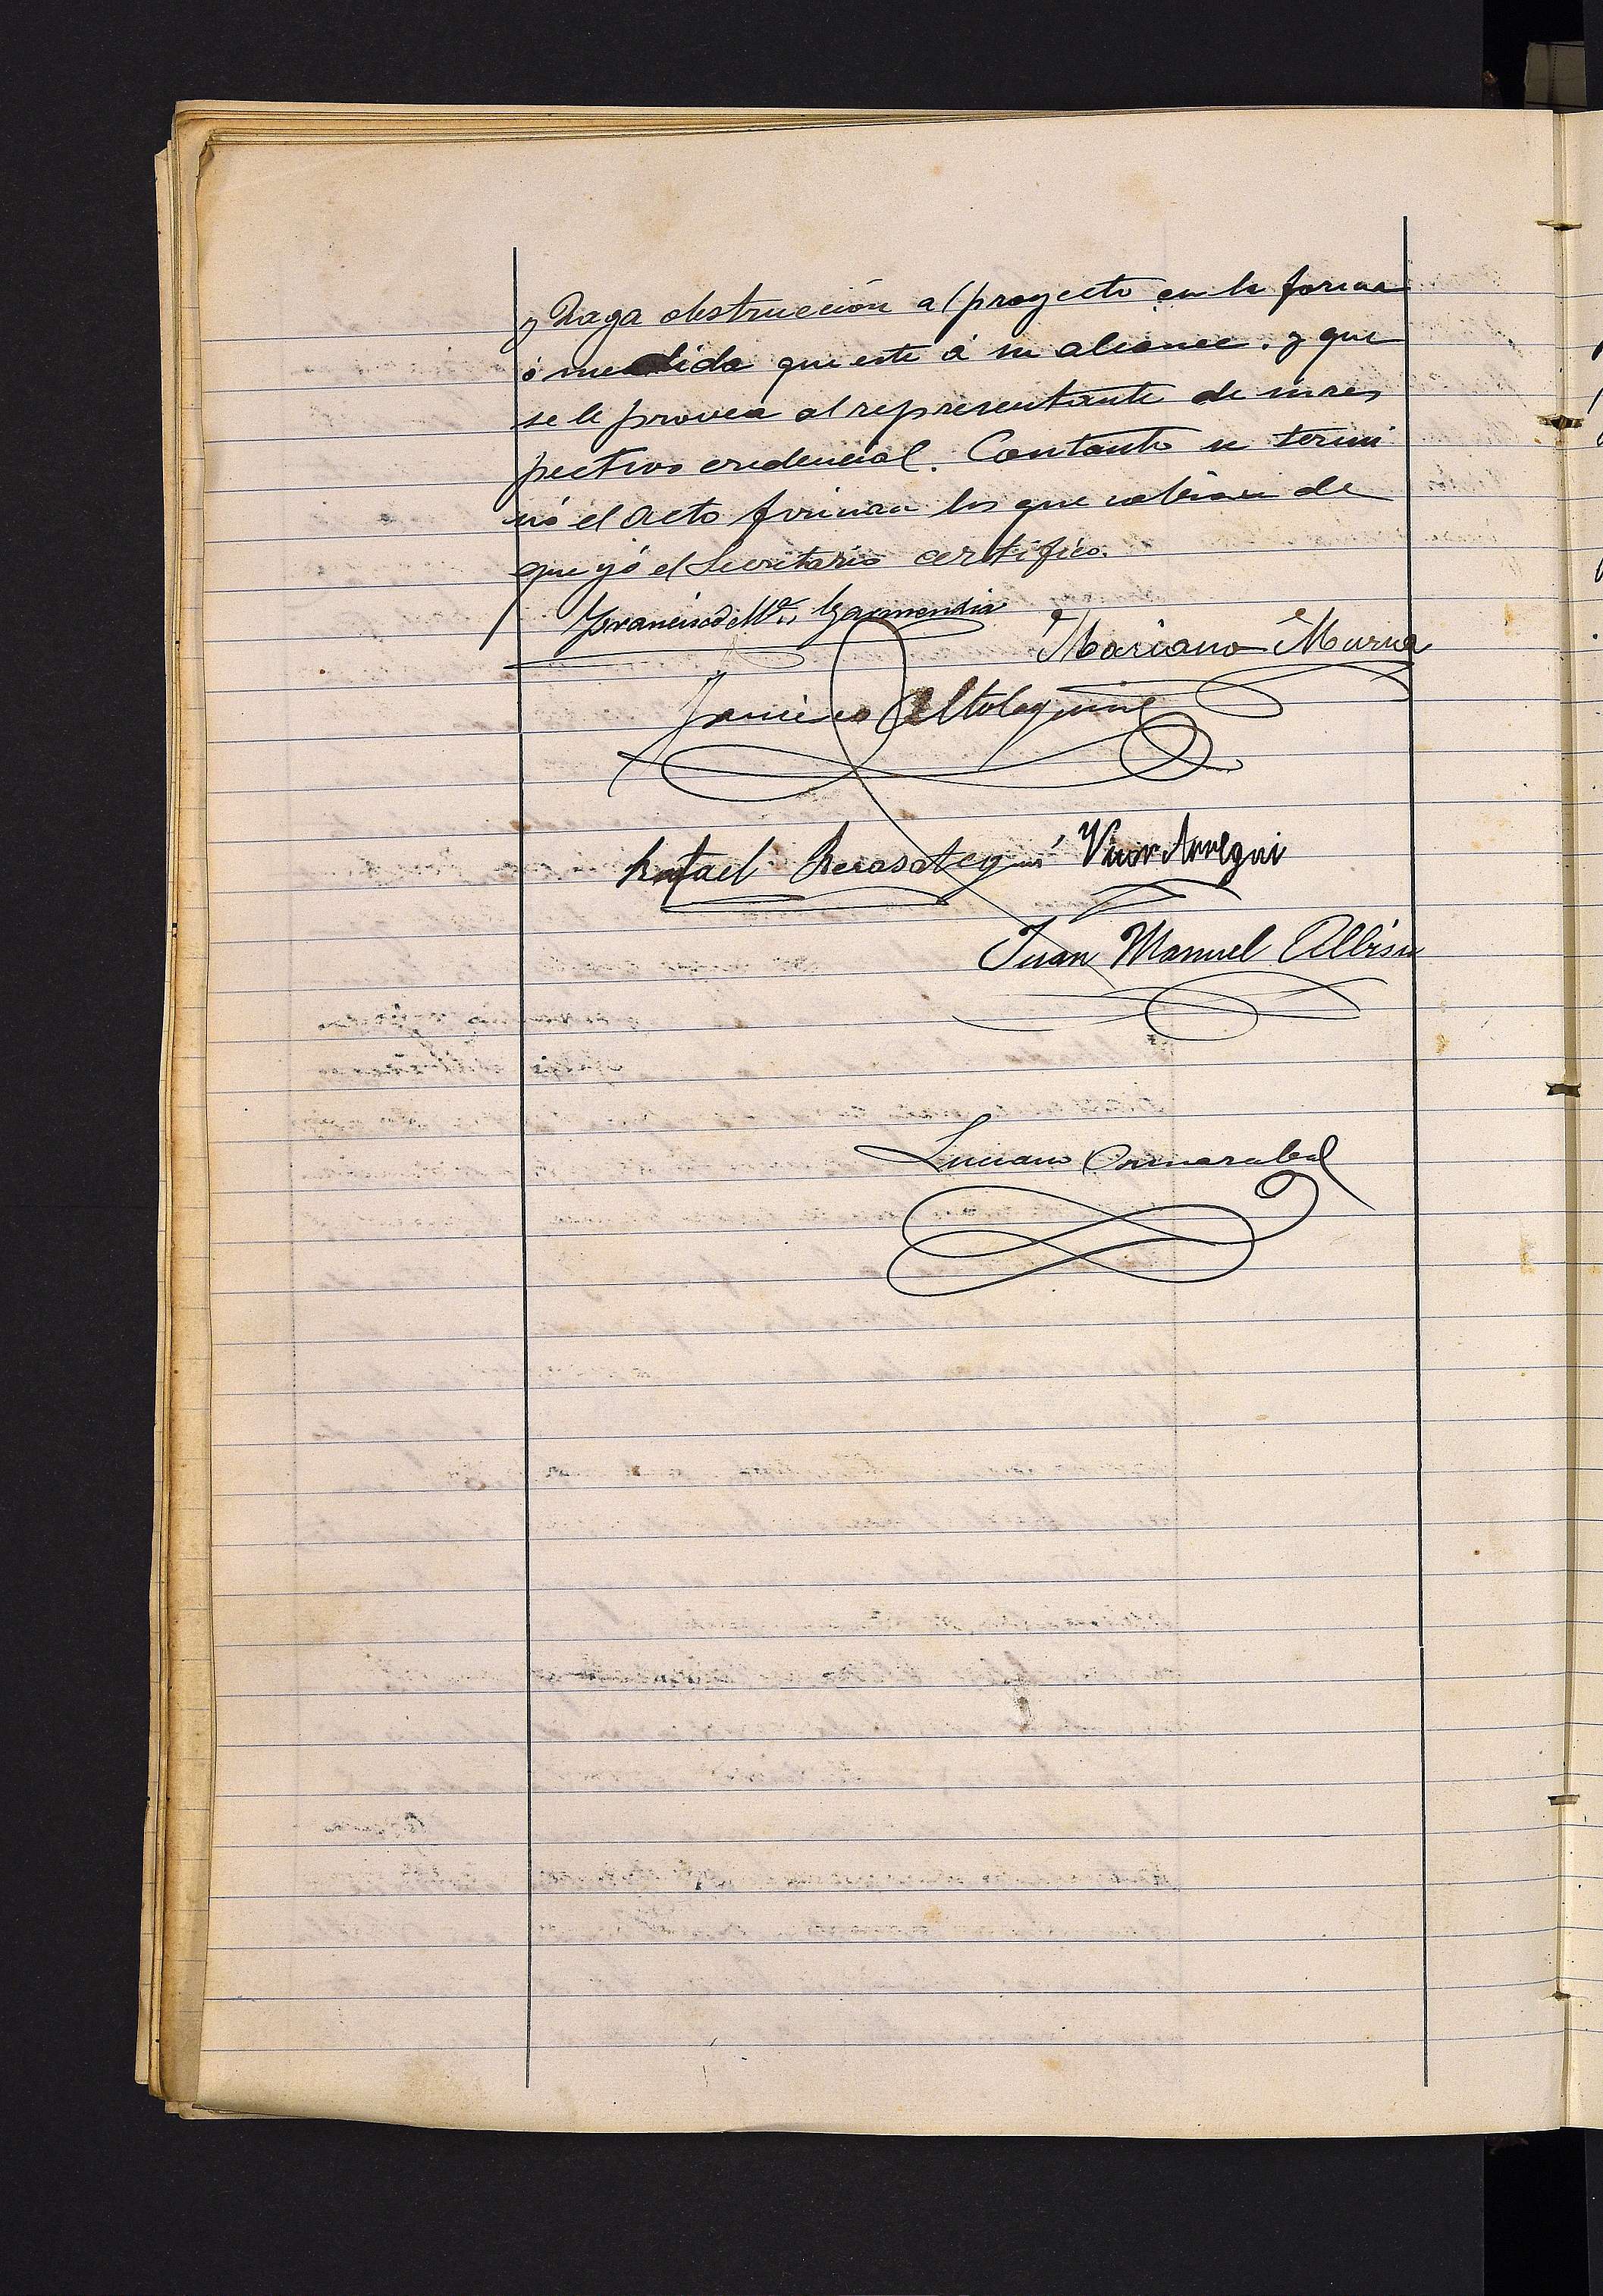 y haga obstrucción al proyecto en la forma
ó medida que este á su alcance. y que
se le provea al representante de su res
pectivo credencial. Con tanto se termi
nó el acto firman los que sabian de
que yó el Secretario certifico.
Francisco Mª. Garmendia
Mariano Murua
Francisco Altolaguirre
Rafael Berasategui Victor Arregui
Juan Manuel Albisu
Luciano Ormazabal